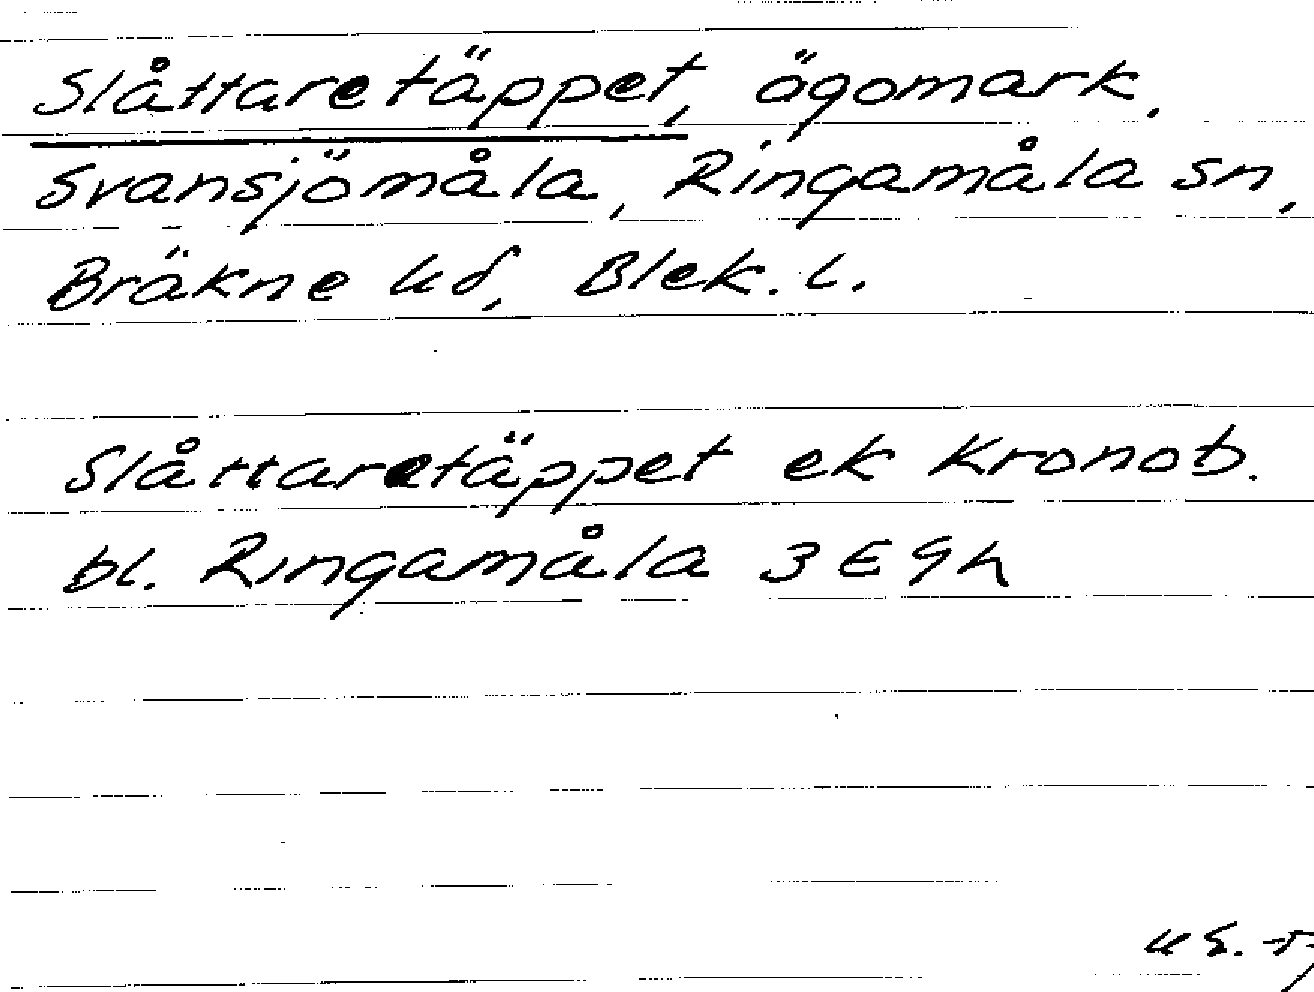 Slåttaretäppet, ägomark.
Svansjömåla, Ringamåla sn,
Bräkne hd, Blek. l.
Slåttaretäppet ek Kronob.
bl. Ringamåla 3E9h